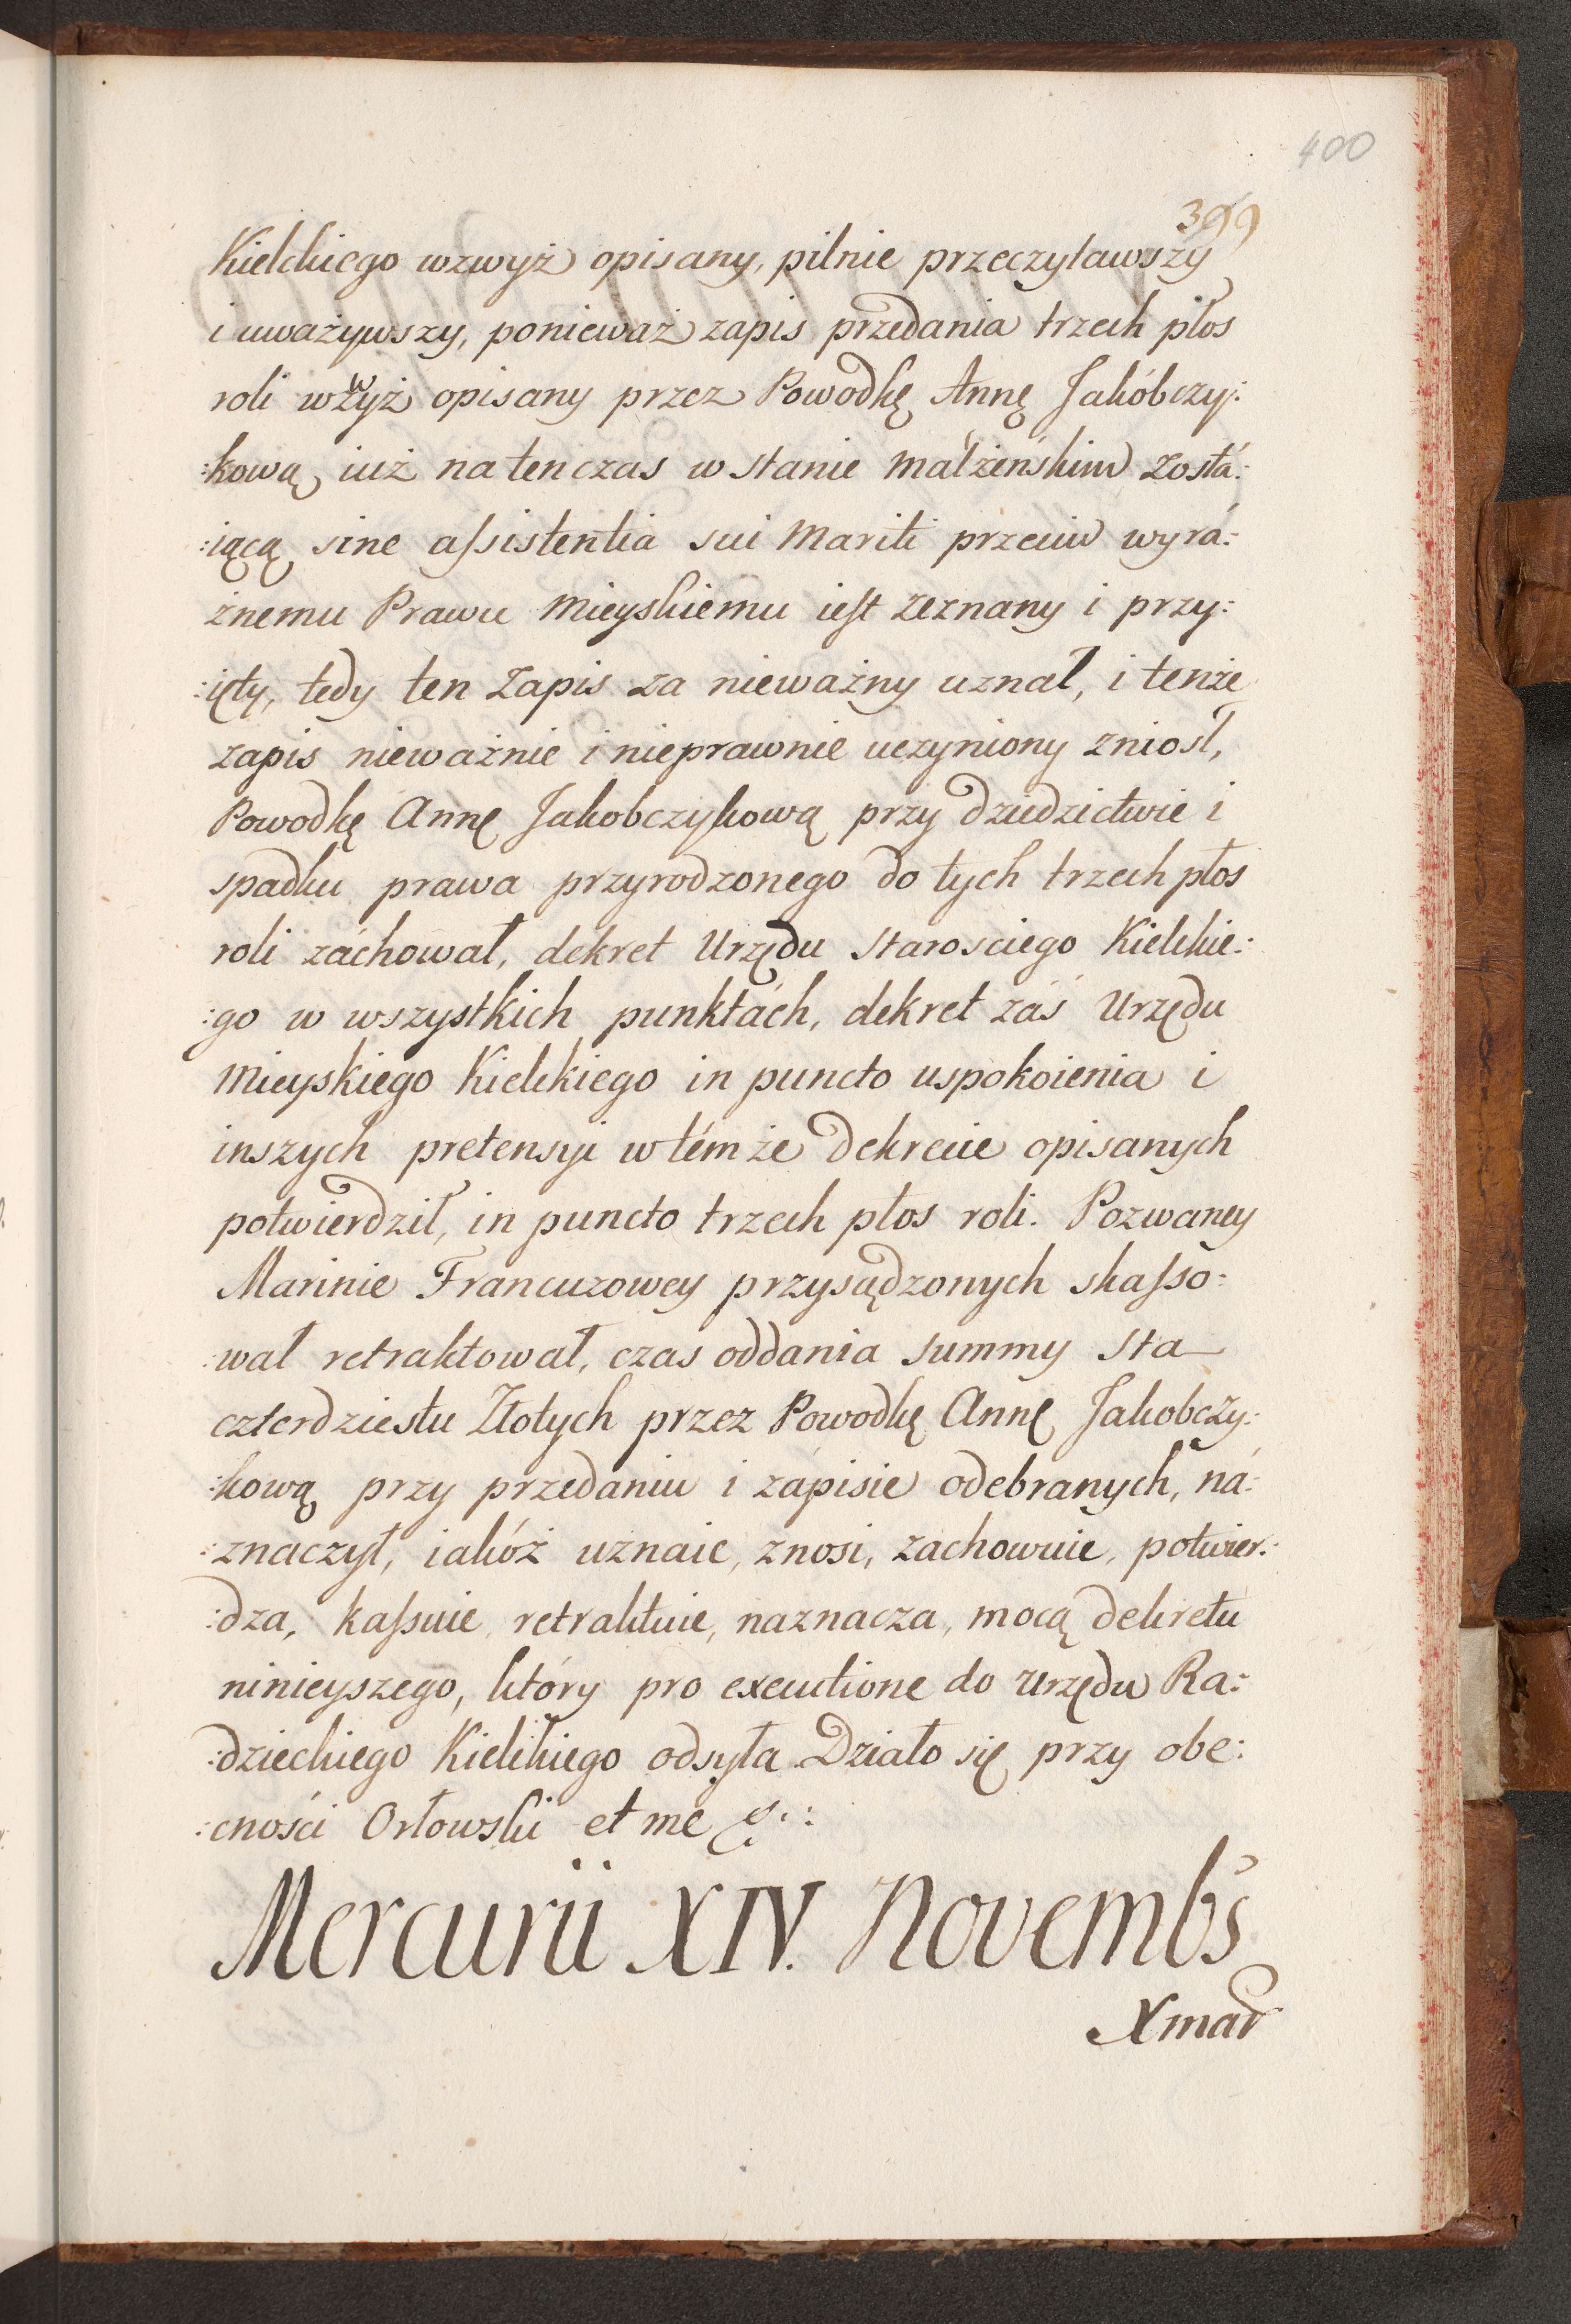 400
399
Kielckiego wzwyż opisany, pilnie przeczytawszy
i uważywszy, ponieważ zapis przedania trzech płos
roli wzwyż opisany przez Powodkę Annę Jakóbczy:
:kową iuż na ten czas w stanie małżeńskim zostá:
:iącą sine aſsistentia sui Mariti przeciw wyrá:
żnemu Prawu Mieyskiemu iest zeznany i przy:
:ięty, tedy ten Zapis za nieważny uznał, i tenże
zapis nieważnie i nieprawnie uczyniony zniosł,
Powodkę Annę Jakobczykową przy dziedzictwie i
spadku prawa przyrodzonego do tych trzech płos
roli záchował, dekret Urzędu Starosciego Kielckie:
:go w wszystkich punktách, dekret záś Urzędu
Mieyskiego Kielckiego in puncto uspokoienia i
inszych pretensyi w témże dekrecie opisanych
potwierdził, in puncto trzech płos roli. Pozwaney
Marinie Francuzowey przysądzonych skaſso:
:wał retraktował, czas oddania summy sta
czterdziestu Złotych przez Powodkę Annę Jakobczy:
:kową przy przedaniu i zápisie odebranych, ná:
:znaczył, iakóż uznaie, znosi, zachowuie, potwier:
:dza, kaſsuie, retraktuie, naznacza, mocą dekretu
ninieyszego, który pro executione do Urzędu Ra:
:dzieckiego Kielckiego odsyła Działo się przy obe:
:cności Orłowski et me
Mercurii XIV. Novembs
Xmav